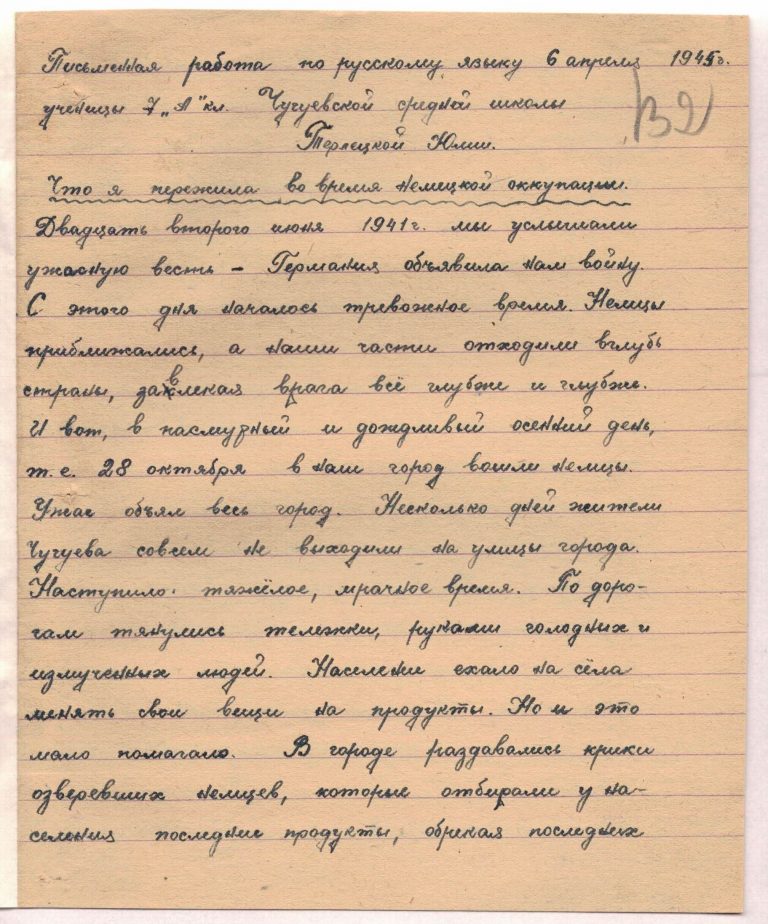 Письменная работа по русскому языку 6 апреля 1945г.
ученицы 7 „А" кл. Чугуевской средней школы
Терлецкой Юлии.
Что я пережила во время немецкой оккупации.
Двадцать второго июня 1941г. мы услышали
ужасную весть – Германия объявила нам войну.
С этого дня началось тревожное время. Немцы
приближались, а наши части отходили вглубь
страны, завлекая врага всё глубже и глубже.
И вот, в пасмурный и дождливый осенний день,
т. е. 28 октября в наш город вошли немцы.
Ужас объял весь город. Несколько дней жители
Чугуева совсем не выходили на улицы города.
Наступило тяжёлое, мрачное время. По доро-
гам тянулись тележки, руками голодных и
измученных людей. Населени ехало на сёла
менять свои вещи на продукты. Но и это
мало помагало. В городе раздавались крики
озверевших немцев, которые отбирали у на-
селения последние продукты, обрекая последних